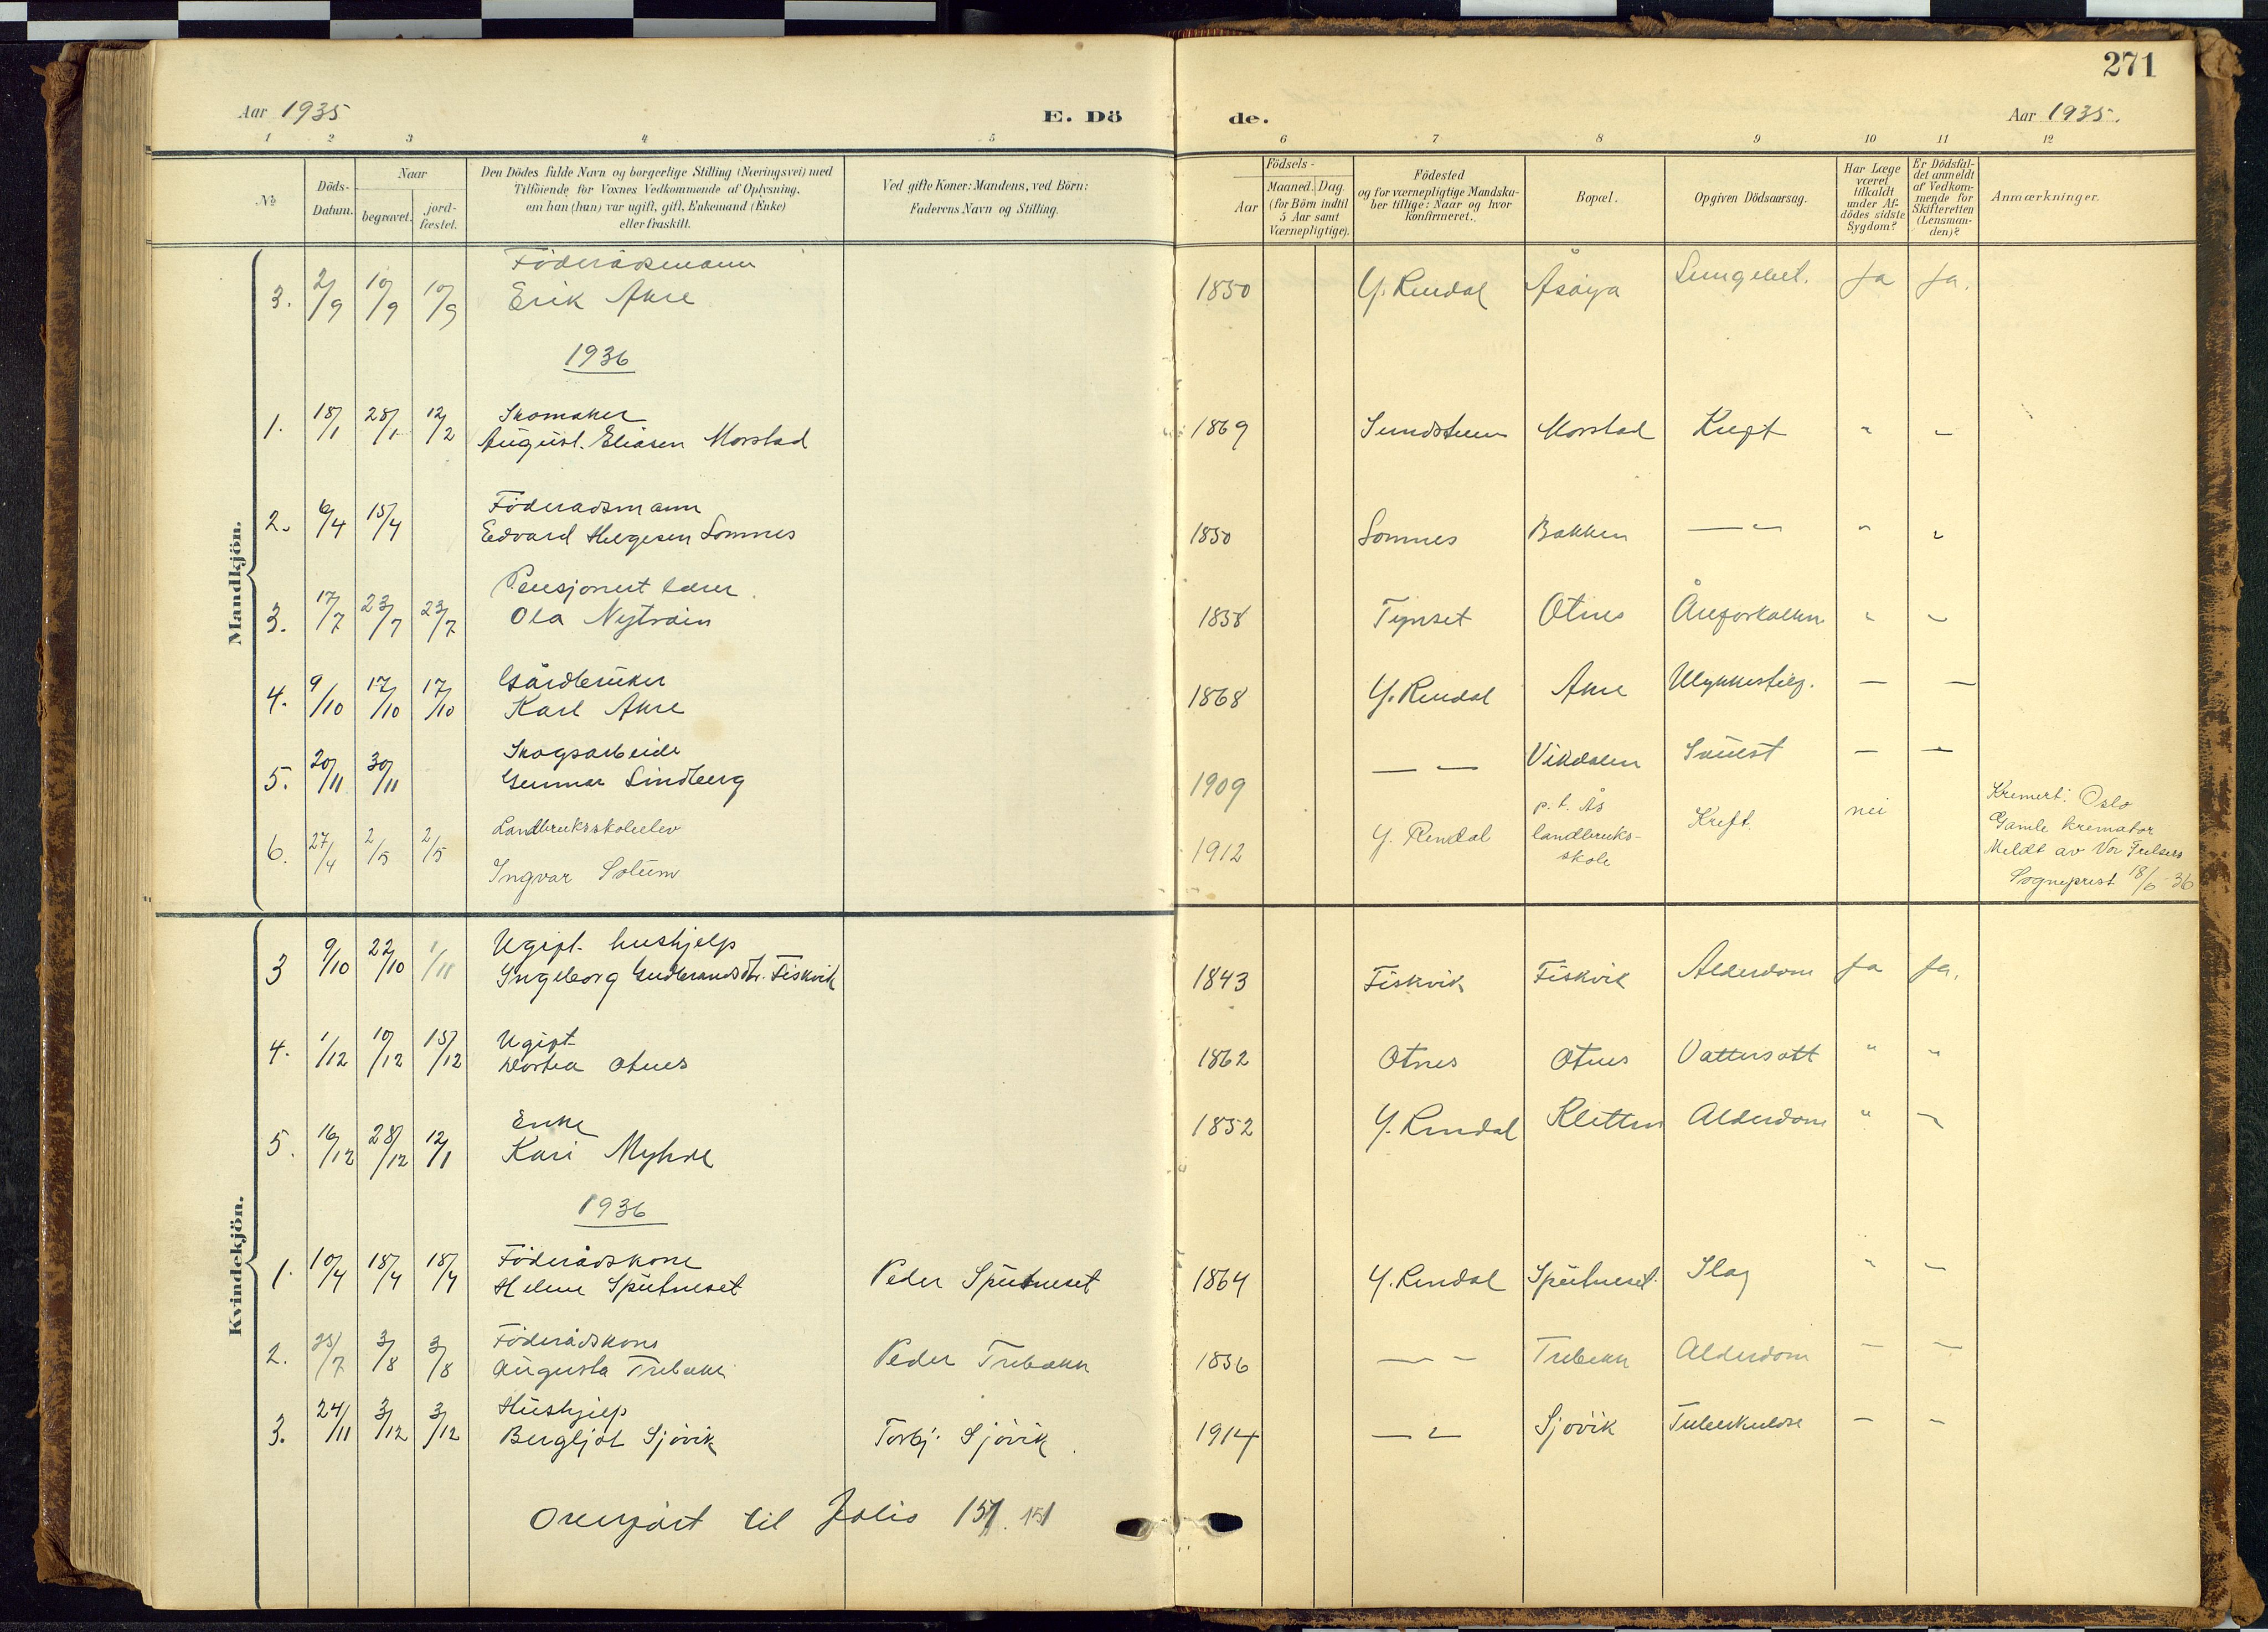 271
Aar 1935 E. Dö de. Aar 1935.
1 2 3 4 5 6 7 8 9 10 11 12
No
Döds-Datum.
Naar
begravet.
jord-fæstet.
Den Dödes fulde Navn og borgerlige Stilling (Næringsvei) med
Tilföiende for Voxnes Vedkommende af Oplysning,
om han (hun) var ugift, gift, Enkemand (Enke)
eller fraskilt.
Ved gifte Koner: Mandens, ved Börn:
Faderens Navn og Stilling.
Födsels-
Aar
Maaned. Dag.
(for Börn indtil
5 Aar samt
Værnepligtige).
Födested
og for værnepligtige Mandska-
ber tillige: Naar og hvor
konfirmeret.
Bopæl.
Opgiven Dödsaarsag.
Har Læge
været
tilkaldt
under Af-
dödes sidste
Sygdom?
Er Dödsfal-
det anmeldt
af Vedkom-
mende for
Skifteretten
(Lensman-
den)?
Anmærkninger.
Mandkjön.
Föderådsmann
3. 2/9 10/9 10/9 Erik Akre 1850 Y. Rendal Åsøya Lungebet. Ja Ja.
1936
Skomaker
1. 18/1 28/1 12/2 August Eliasen Morstad 1869 Morstad Kreft " "
Föderadsmann
2. 6/4 15/4 Edvard Helgesen Lomnes 1850 Lomnes Bakken — " — " "
Pensjonert lærer
3. 17/7 23/7 23/7 Ola Nytrøin 1858 Tynset Otnes Åreforkalkn. " "
Gårdbruker
4. 9/10 17/10 17/10 Karl Akre 1868 Y. Rendal Akre Ulykkestilf. — —
Skogsarbeide
5. 20/11 30/11 Gunnar Lindberg 1909 — — Vikdalen — —
Landbruksskoleelev
6. 27/4 2/5 2/5 Ingvar Solum 1912 Y. Rendal p.t. Ås landbruks-skole Kreft. nei
Kremert: Oslo
Gamle kremator
Meldt av Vor Frelsers
Sogneprest 18/6-36
Kvindekjön.
Ugift hushjelp
3 9/10 22/10 1/11 Ingeborg Gudbrandsdtr. Fiskvik 1843 Fiskvik Fiskvik Alderdom Ja Ja.
Ugift
4. 1/12 10/12 15/12 Dortea Otnes 1862 Otnes Otnes Vattersott " "
Enke
5. 16/12 28/12 12/1 Kari Myhre 1852 Y. Rendal Kletten Alderdom " "
1936
Föderådskone
1. 10/4 18/4 18/4 Helene Sputneset Peder Sputneset 1864 Y. Rendal Sputneset Slag " "
Föderådskone
2. 25/7 3/8 3/8 Augusta Trebækk Peder Trebækk 1856 — — Trebekk Alderdom — —
Hushjelp
3. 24/11 3/12 3/12 Bergljot Sjövik Torbj. Sjövik. 1914 — " — Sjövik Tuberkulose — —
Overført til Folio 151. 151